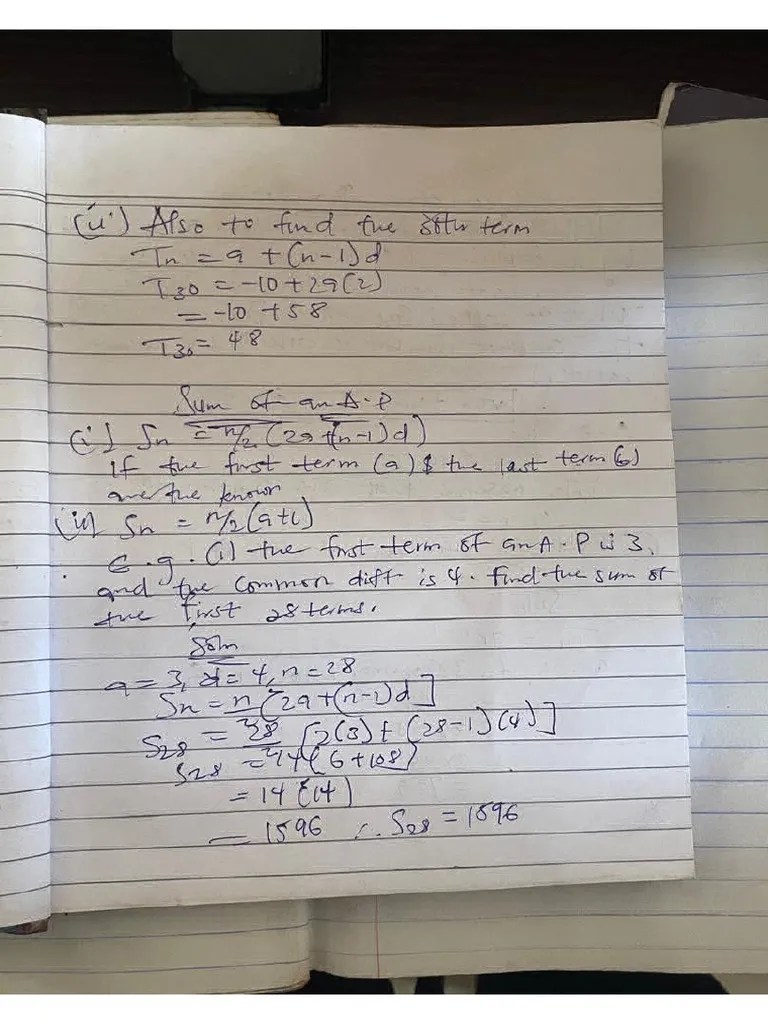 (ii) Also to find the 30th term
Tn = a + (n-1)d
T30 = -10 + 29(2)
= -10 + 58
T30 = 48
Sum of an A.P
(i) Sn = n/2 (2a + (n-1)d)
If the first term (a) & the last term (l)
are the known
(ii) Sn = n/2 (a+l)
E.g. (i) the first term of an A.P is 3,
and the common diff is 4. find the sum of
the first 28 terms.
Soln
a = 3, d = 4, n = 28
Sn = n/2 [2a + (n-1)d]
S28 = 28/2 [2(3) + (28-1)(4)]
S28 = 14 (6 + 108)
= 14 (14)
= 1596 ∴ S28 = 1596